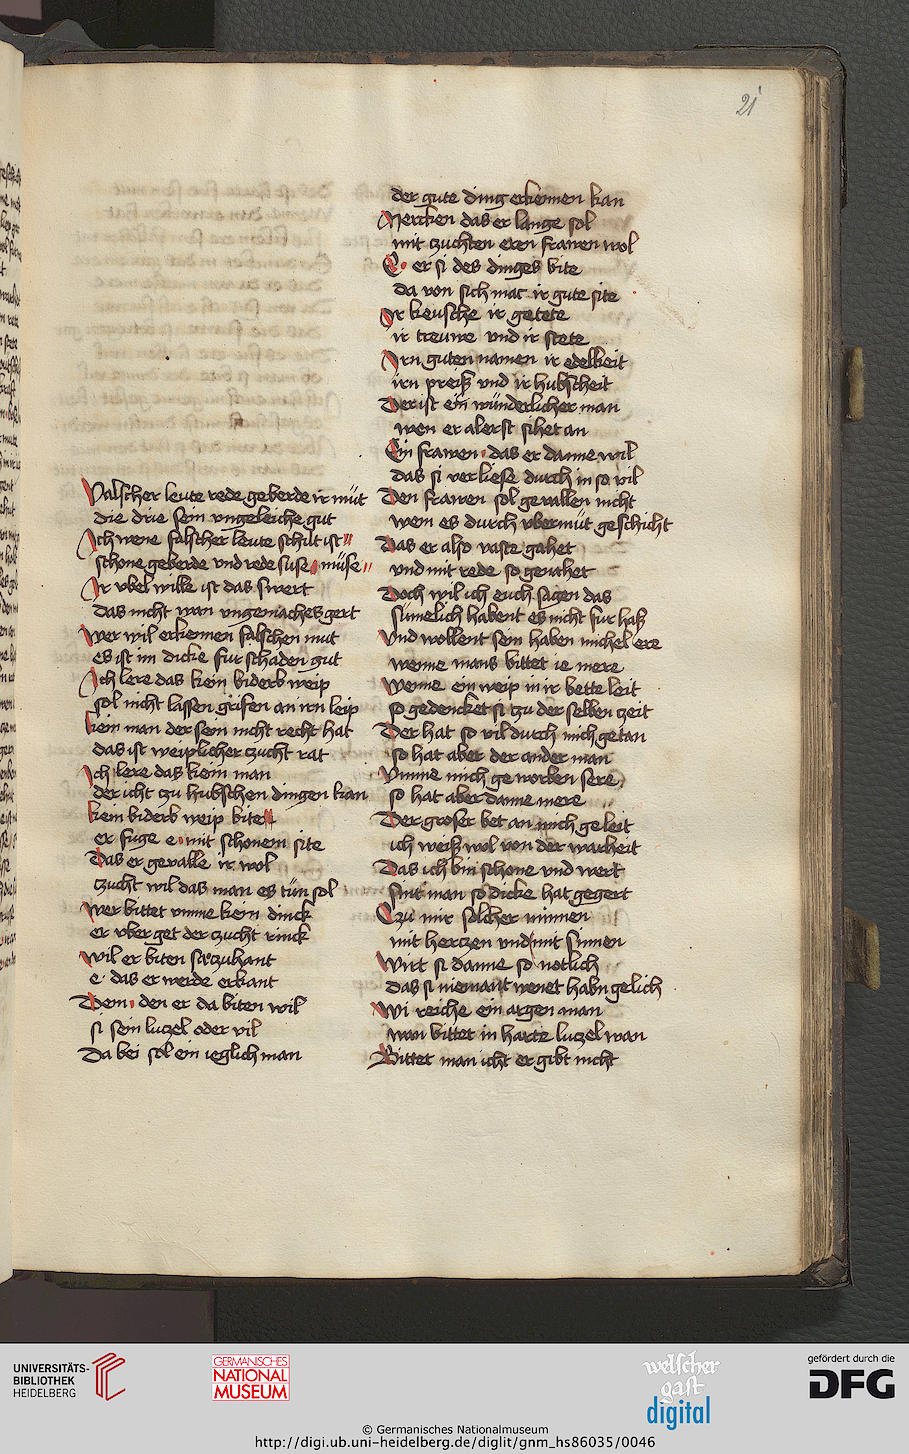 21
Valscher leute rede geberde ir müt
die drie sein ungeleiche gut
Ich wene falscher leute schilt ist
schone geberde und rede suse müse
Ir vbel wille ist das swert
das nicht wan vngemaches gert
wer wil erkennen falschen mut
es ist im dicke fur schaden gut
Ich lere das kein biderb weip
sol nicht lassen grifen an irn leip
kein man der sein nicht recht hat
das ist weiplicher zucht rat
Ich lere das kein man
der icht czu hubschen dingen kan
kein biderb weip bite
er fuge e mit schonem site
Das er gevalle ir wol
czucht wil das man es tün sol
wer bittet vmme kein dinck
er vber get der zucht rinck
wil er biten sa czuhant
e das er werde erkant
Dem den er da biten wil
si sein luczel oder vil
Da bei sol ein ieglich man
der gute ding erkennen kan
Mercken das er lange sol
mit czuchten eren frawen wol
E er si des dinges bite
da von sich mac ir gute site
Ir keusche ir getete
ir treuwe und ir stete
Irn guten namen ir edelkeit
irn preiß und ir hubscheit
Der ist ein wünderlicher man
wen er alerst sihet an
Ein frawen das er danne wil
das si verliese durch in so vil
Den frawen sol gevallen nicht
wem es durch vbermüt geschicht
Das er also vaste gahet
und mit rede so genahet
Doch wil ich euch sagen das
sümelich habent es nicht fur haß
Und wollent sein haben michel ere
wenne mans bittet ie mere
Wenne ein weip in ir bette leit
so gedencket si czu der selben czeit
Der hat so vil durch mich getan
so hat aber der ander man
Vmme mich geworben sere
so hat aber danne mere
Der groser bet an mich geleit
ich weiß wol von der warheit
Das ich bin schone und wert
sint man so dicke hat gegert
Czu mir solcher minnen
mit herczen und mit sinnen
Wirt si danne so notlich
das si niemant wenet habn gelich
Wi reiche ein arger man
wan bittet in harte luczel wan
Bittet man icht er gibt nicht
UNIVERSITÄTS-
BIBLIOTHEK
HEIDELBERG
GERMANISCHES
NATIONAL
MUSEUM
welscher
gast
digital
gefördert durch die
DFG
© Germanisches Nationalmuseum
http://digi.ub.uni-heidelberg.de/diglit/gnm_hs86035/0046